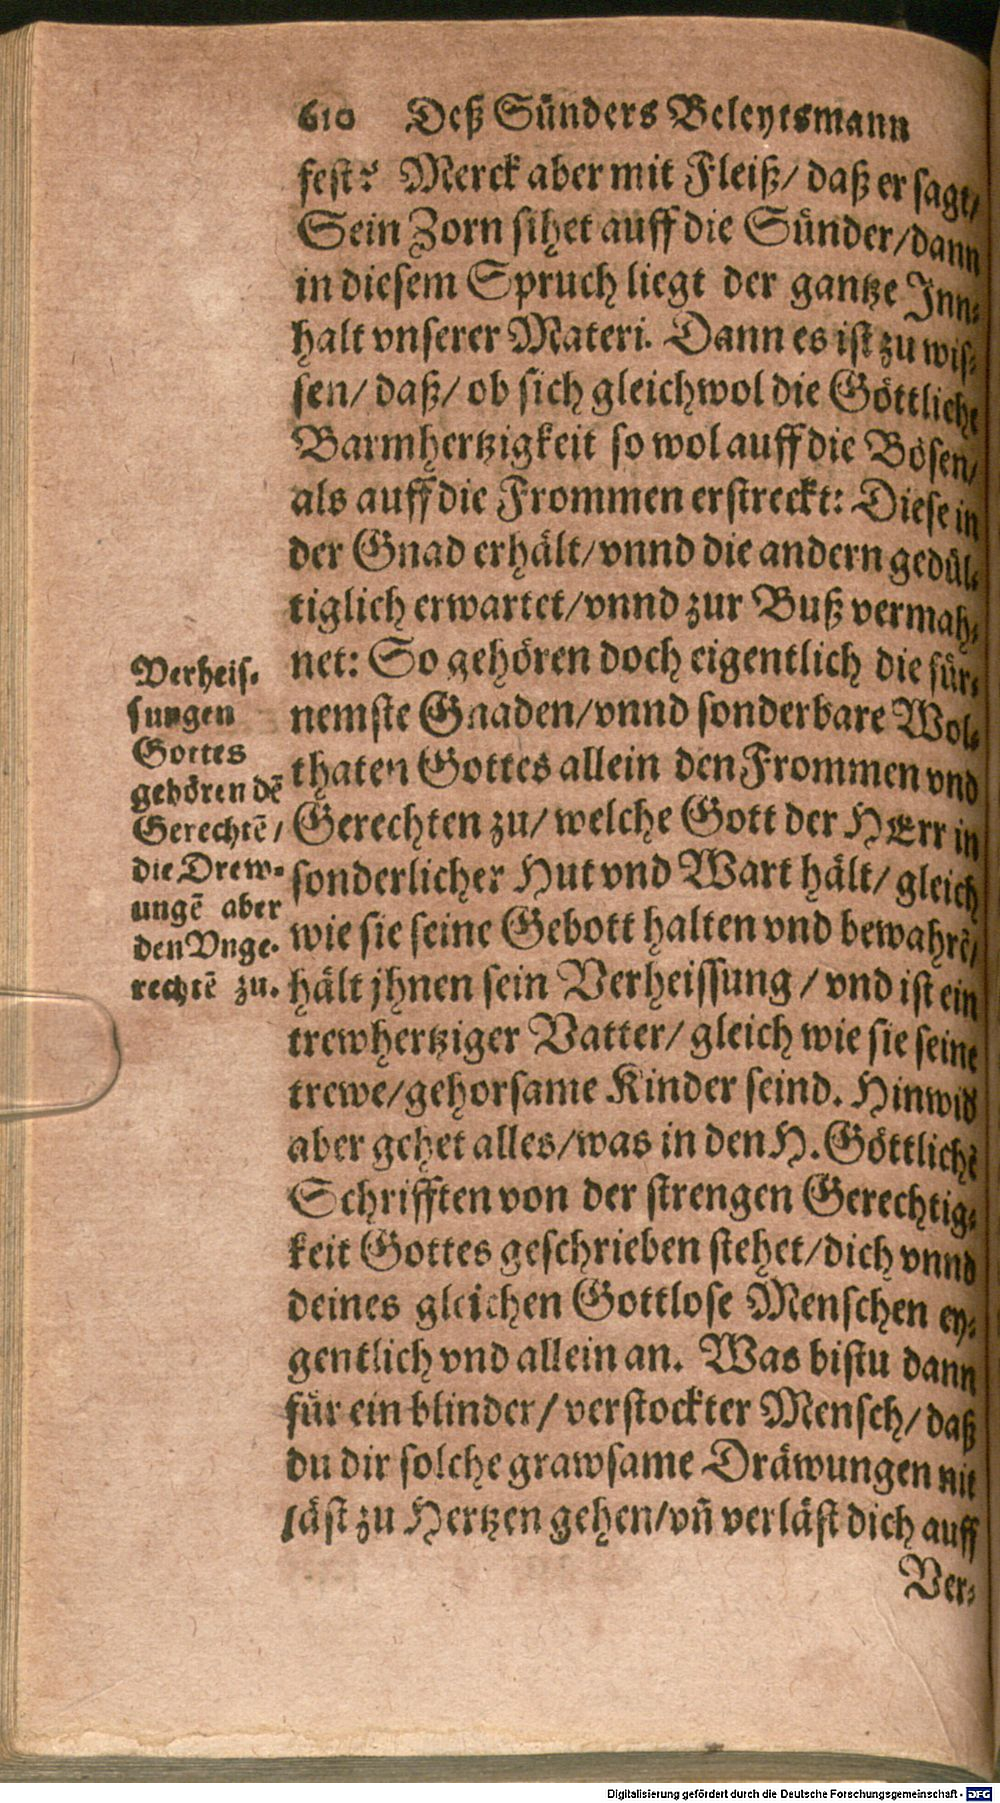 610 Deß Sünders Beleytsmann
fest? Merck aber mit Fleiß/ daß er sagt/
Sein Zorn sihet auff die Sünder/dann
in diesem Spruch liegt der gantze Inn-
halt vnserer Materi. Dann es ist zu wis-
sen/ daß/ ob sich gleichwol die Göttliche
Barmhertzigkeit so wol auff die Bösen/
als auff die Frommen erstreckt: Diese in
der Gnad erhält/vnnd die andern gedül-
tiglich erwartet/vnnd zur Buß vermah-
net: So gehören doch eigentlich die für-
nemste Gnaden/vnnd sonderbare Wol-
thaten Gottes allein den Frommen vnd
Gerechten zu/ welche Gott der HErr in
sonderlicher Hut vnd Wart hält/ gleich
wie sie seine Gebott halten vnd bewahrē/
hält jhnen sein Verheissung / vnd ist ein
trewhertziger Vatter/ gleich wie sie seine
trewe/gehorsame Kinder seind. Hinwid
aber gehet alles/was in den H. Göttlichē
Schrifften von der strengen Gerechtig-
keit Gottes geschrieben stehet/dich vnnd
deines gleichen Gottlose Menschen ey-
gentlich vnd allein an. Was bistu dann
für ein blinder/ verstockter Mensch/ daß
du dir solche grawsame Dräwungen nit
läst zu Hertzen gehen/vñ verläst dich auff
Ver-
Verheis-
sungen
Gottes
gehören dē
Gerechtē /
die Drew-
ungē aber
den Vnge-
rechtē zu.
Digitalisierung gefördert durch die Deutsche Forschungsgemeinschaft - DFG